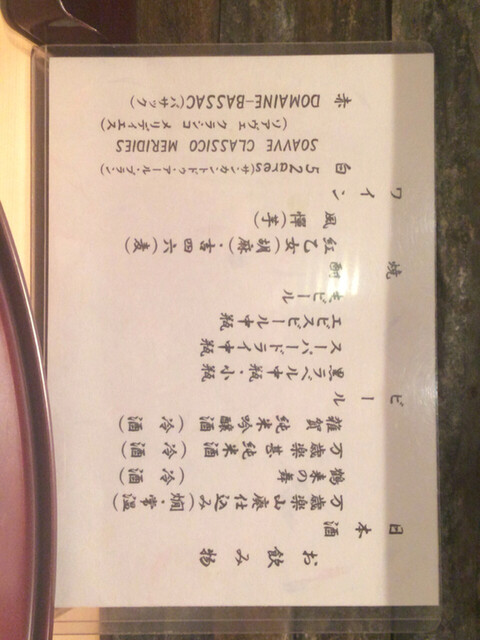 お飲み物
日本酒
万歳楽 山廃仕込み(燗・常温)
鶴来の舞 (冷酒)
万歳楽 甚 純米酒 (冷酒)
雑賀 純米吟醸酒 (冷酒)
ビール
黒ラベル中瓶・小瓶
スーパードライ中瓶
エビスビール中瓶
生ビール
焼酎
紅乙女(胡麻)・吉四六(麦)
風憚(芋)
ワイン
白 52ares(サンカントドゥ・アール・ブラン)
SOAVVE CLASSICO MERIDIES
(ソアヴェ クラシコ メリディエス)
赤 DOMAINE-BASSAC(バサック)